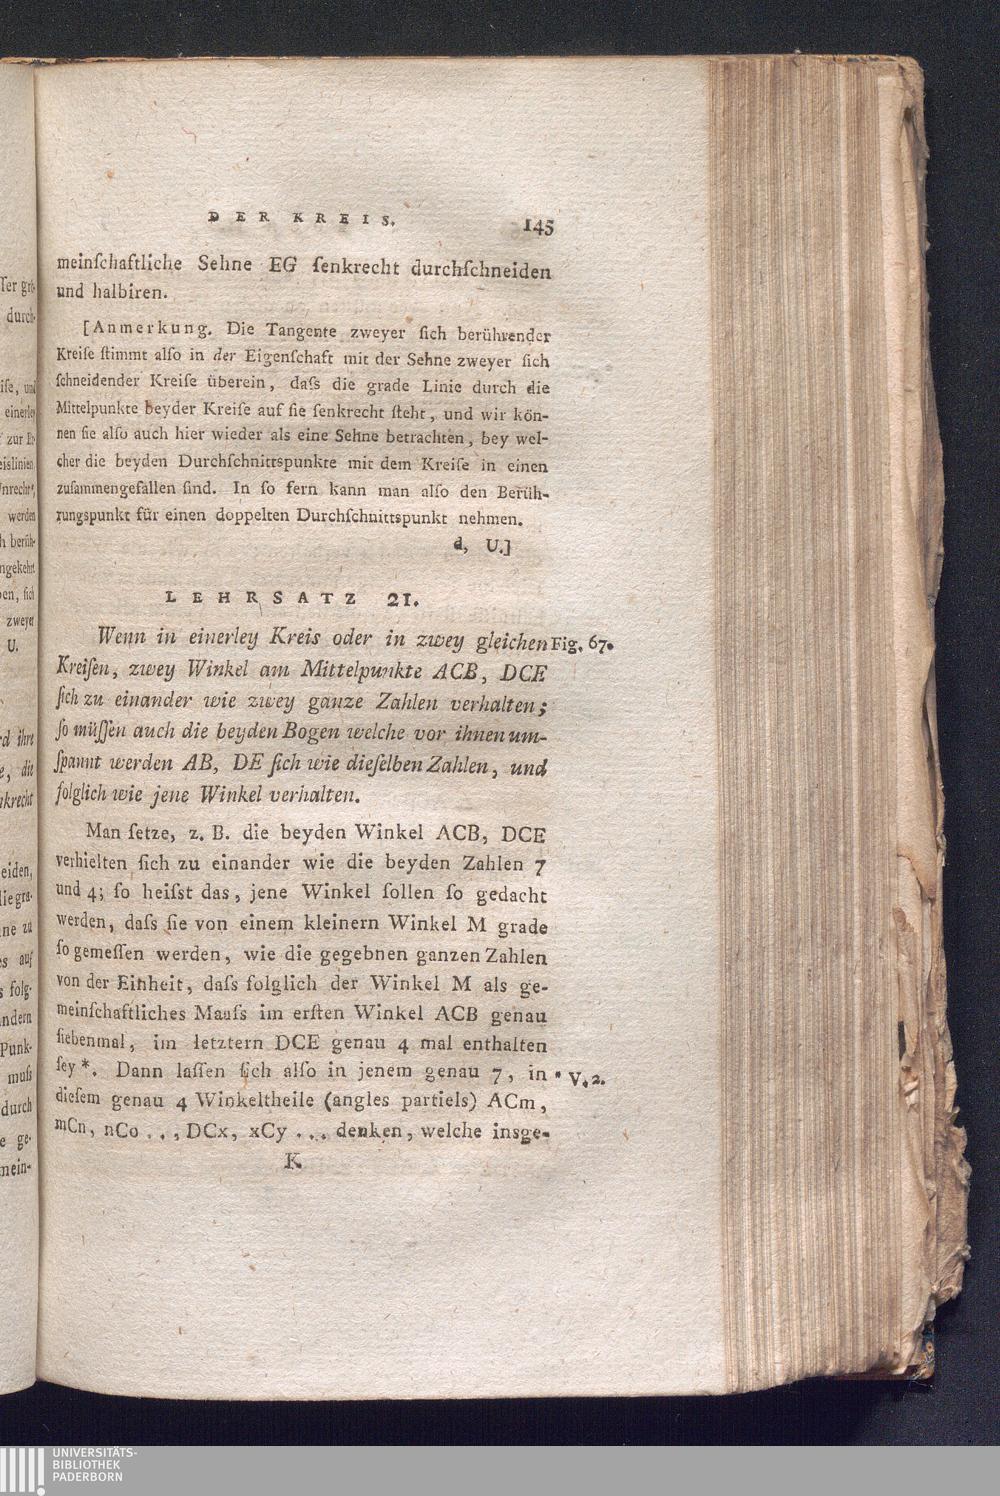 DER KREIS. 145
meinſchaftliche Sehne EG ſenkrecht durchſchneiden
und halbiren.
[Anmerkung. Die Tangente zweyer ſich berührender
Kreiſe ſtimmt alſo in der Eigenſchaft mit der Sehne zweyer ſich
ſchneidender Kreiſe überein, daſs die grade Linie durch die
Mittelpunkte beyder Kreiſe auf ſie ſenkrecht ſteht, und wir kön-
nen ſie alſo auch hier wieder als eine Sehne betrachten, bey wel-
cher die beyden Durchſchnittspunkte mit dem Kreiſe in einen
zuſammengefallen ſind. In ſo fern kann man alſo den Berüh-
rungspunkt für einen doppelten Durchſchnittspunkt nehmen.
d, U.]
LEHRSATZ 21.
Wenn in einerley Kreis oder in zwey gleichen Fig. 67.
Kreiſen, zwey Winkel am Mittelpunkte ACB, DCE
ſich zu einander wie zwey ganze Zahlen verhalten;
ſo müſſen auch die beyden Bogen welche vor ihnen um-
ſpannt werden AB, DE ſich wie dieſelben Zahlen, und
folglich wie jene Winkel verhalten.
Man ſetze, z. B. die beyden Winkel ACB, DCE
verhielten ſich zu einander wie die beyden Zahlen 7
und 4; ſo heiſst das, jene Winkel ſollen ſo gedacht
werden, daſs ſie von einem kleinern Winkel M grade
ſo gemeſſen werden, wie die gegebnen ganzen Zahlen
von der Einheit, daſs folglich der Winkel M als ge-
meinſchaftliches Maaſs im erſten Winkel ACB genau
ſiebenmal, im letztern DCE genau 4 mal enthalten
ſey *. Dann laſſen ſich alſo in jenem genau 7, in * V, 2.
dieſem genau 4 Winkeltheile (angles partiels) ACm,
mCn, nCo . . , DCx, xCy . . . denken, welche insge-
K
UNIVERSITÄTS-
BIBLIOTHEK
PADERBORN